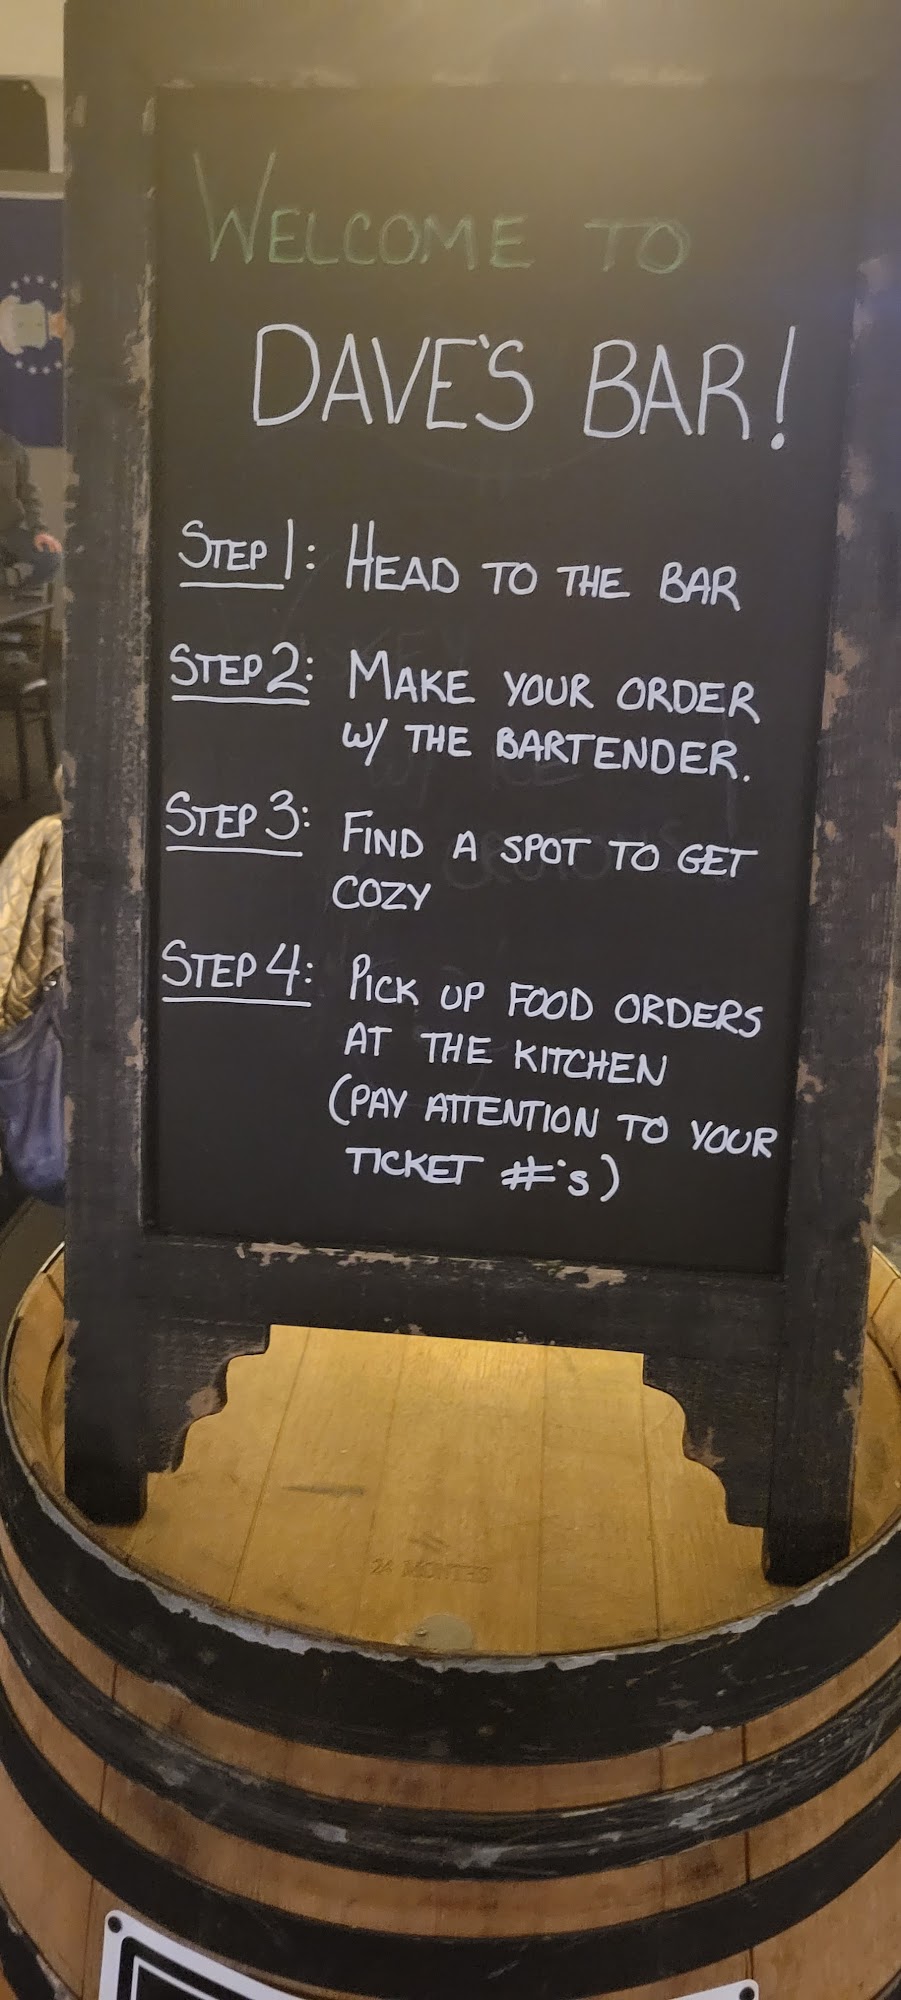 WELCOME TO
DAVE'S BAR!
STEP 1: HEAD TO THE BAR
STEP 2: MAKE YOUR ORDER
W/ THE BARTENDER.
STEP 3: FIND A SPOT TO GET
COZY
STEP 4: PICK UP FOOD ORDERS
AT THE KITCHEN
(PAY ATTENTION TO YOUR
TICKET #'s)
24 MONTHS